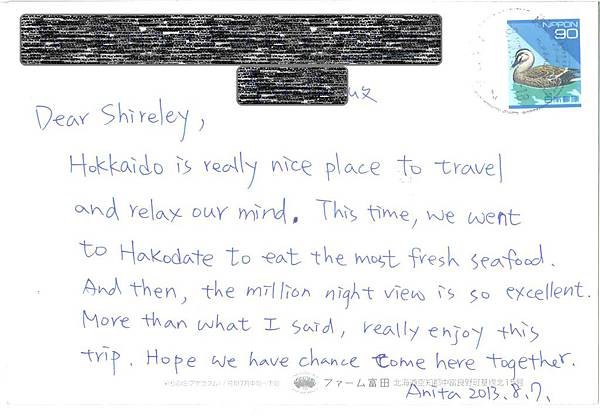 NIPPON
90
Dear Shireley,
Hokkaido is really nice place to travel
and relax our mind. This time, we went
to Hakodate to eat the most fresh seafood.
And then, the million night view is so excellent.
More than what I said, really enjoy this
trip. Hope we have chance come here together.
ファーム富田 北海道空知郡中富良野町基線北15号
Anita 2013.8.7.